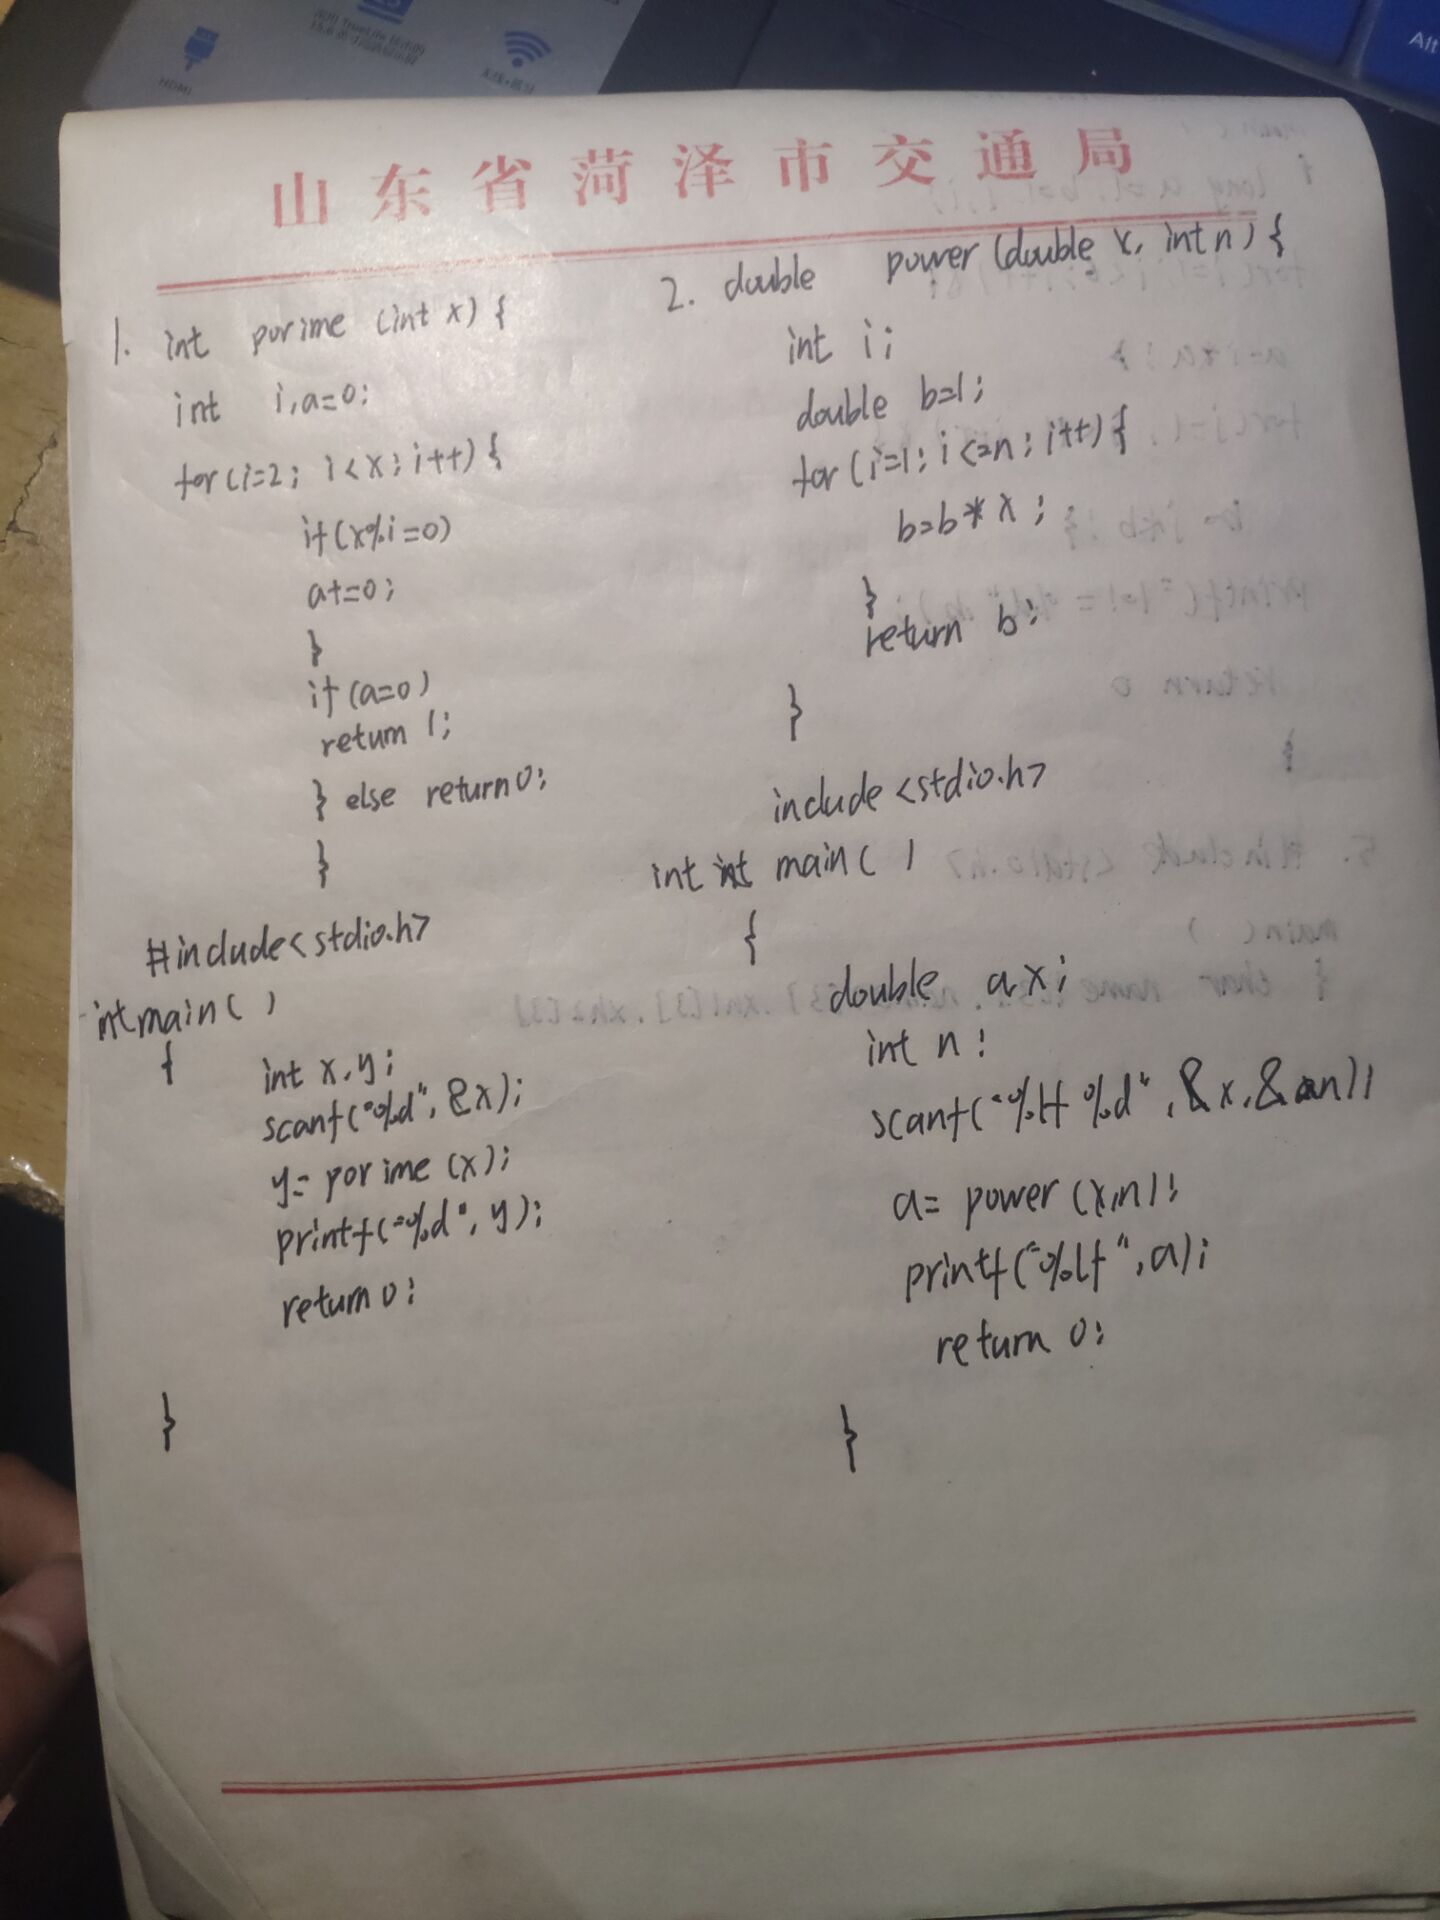 HDMI
Alt
山东省菏泽市交通局
1. int porime (int x) {
int i,a=0;
for(i=2; i<x; i++) {
if(x%i=0)
a+=0;
}
if(a=0)
return 1;
} else return 0;
}
#include<stdio.h>
int main( )
{ int x,y;
scanf("%d", &x);
y= porime (x);
printf("%d", y);
return 0;
}
2. double power (double x, int n) {
int i;
double b=1;
for (i=1; i<=n; i++) {
b=b*x;
}
return b;
}
include<stdio.h>
int int main( )
{
double a x;
int n;
scanf("%lf %d", &x, &n);
a= power (x,n);
printf("%lf", a);
return 0;
}